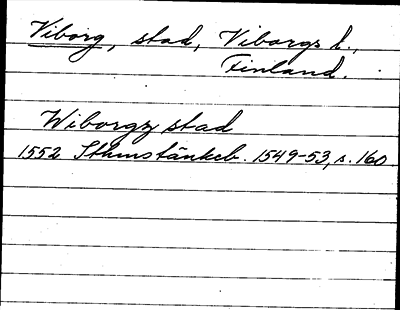 Viborg, stad, Viborgs l.,
Finland.
Wiborgz stad
1552 Sthmstänkeb. 1549-53, s. 160.